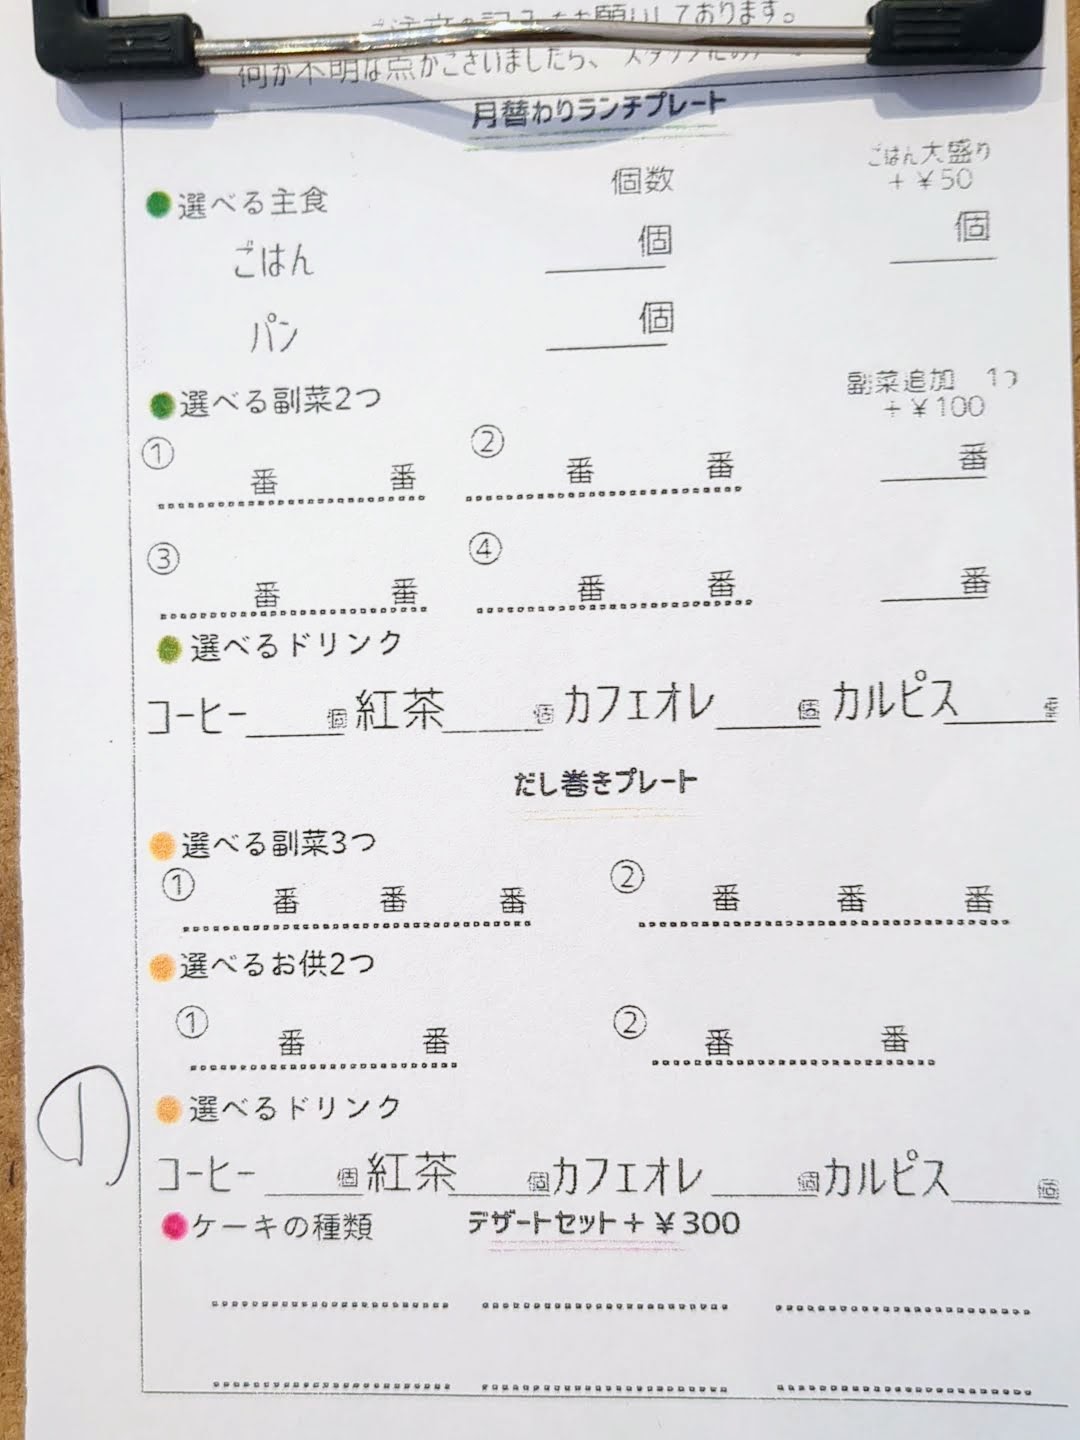 ご注意の記入をお願いしております。
何か不明な点がございましたら、スタッフにお
月替わりランチプレート
ごはん大盛り
選べる主食 個数 +¥50
ごはん 個 個
パン 個
選べる副菜2つ 副菜追加 1つ
+¥100
① 番 番 ② 番 番 番
③ 番 番 ④ 番 番 番
選べるドリンク
コーヒー 個 紅茶 個 カフェオレ 個 カルピス
だし巻きプレート
選べる副菜3つ
① 番 番 番 ② 番 番 番
選べるお供2つ
① 番 番 ② 番 番
選べるドリンク
①
コーヒー 個 紅茶 個 カフェオレ 個 カルピス 個
ケーキの種類 デザートセット+¥300